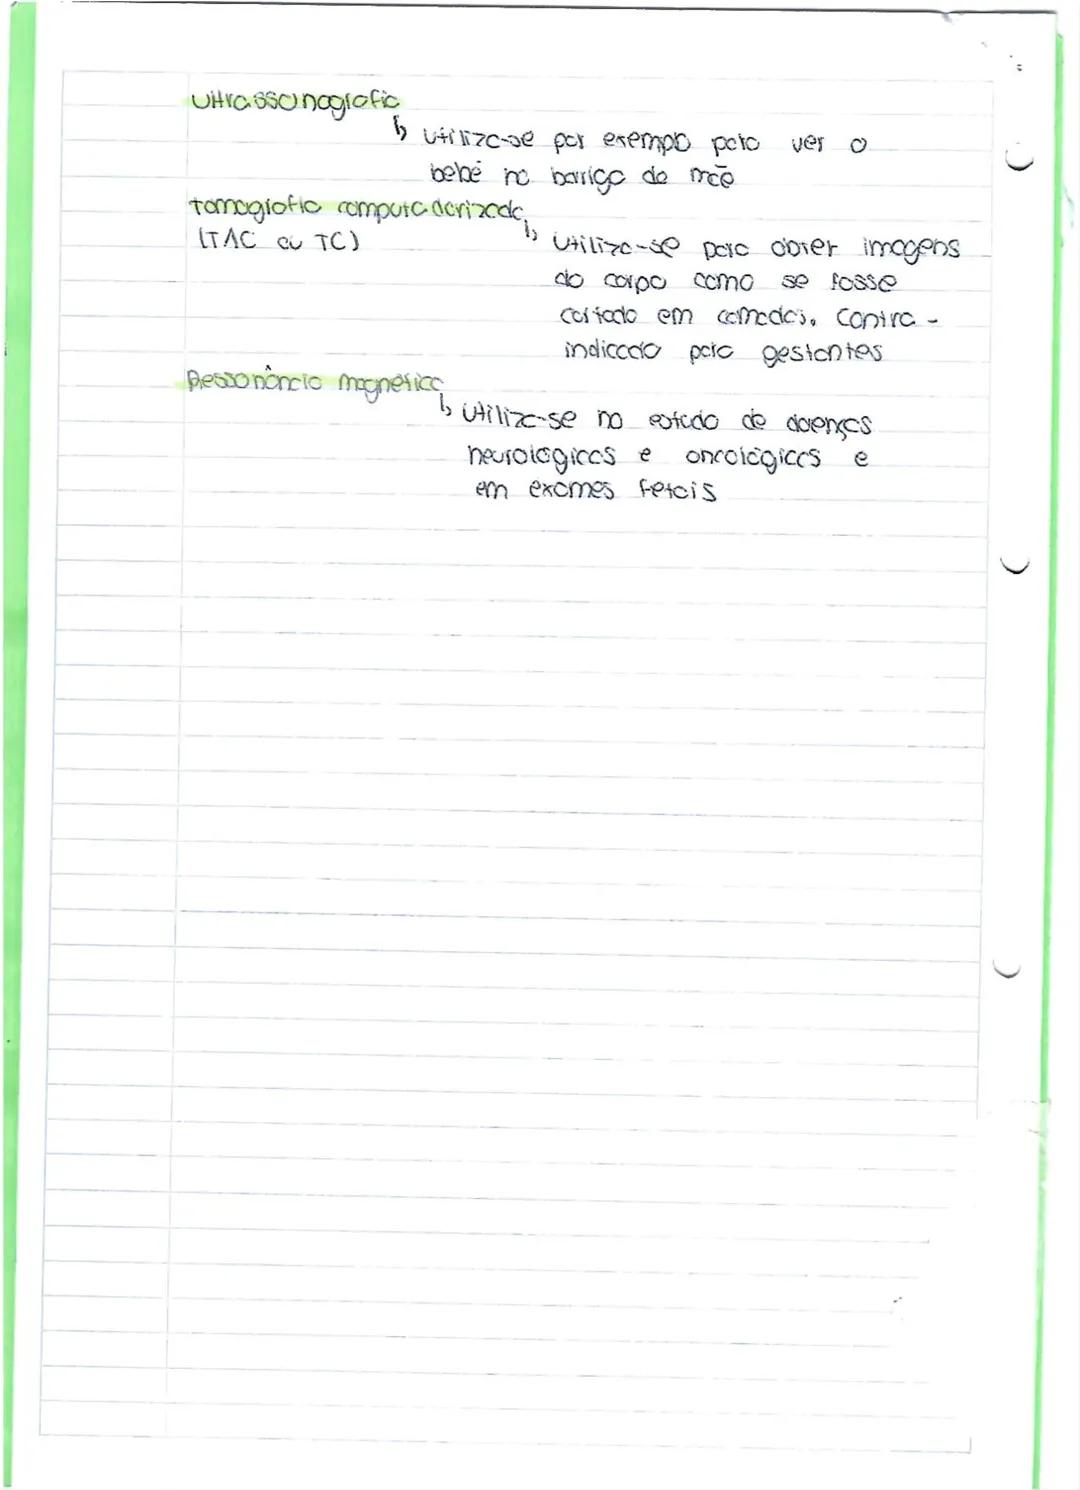 Ultrassonografia
↳ utiliza-se por exemplo para ver o
bebé na barriga da mãe
tomografia computadorizada
(TAC ou TC)
↳ utiliza-se para obter imagens
do corpo como se fosse
cortado em camadas. Contra-
indicado para gestantes
Ressonância magnética
↳ utiliza-se no estudo de doenças
neurológicas e oncológicas e
em exames fetais